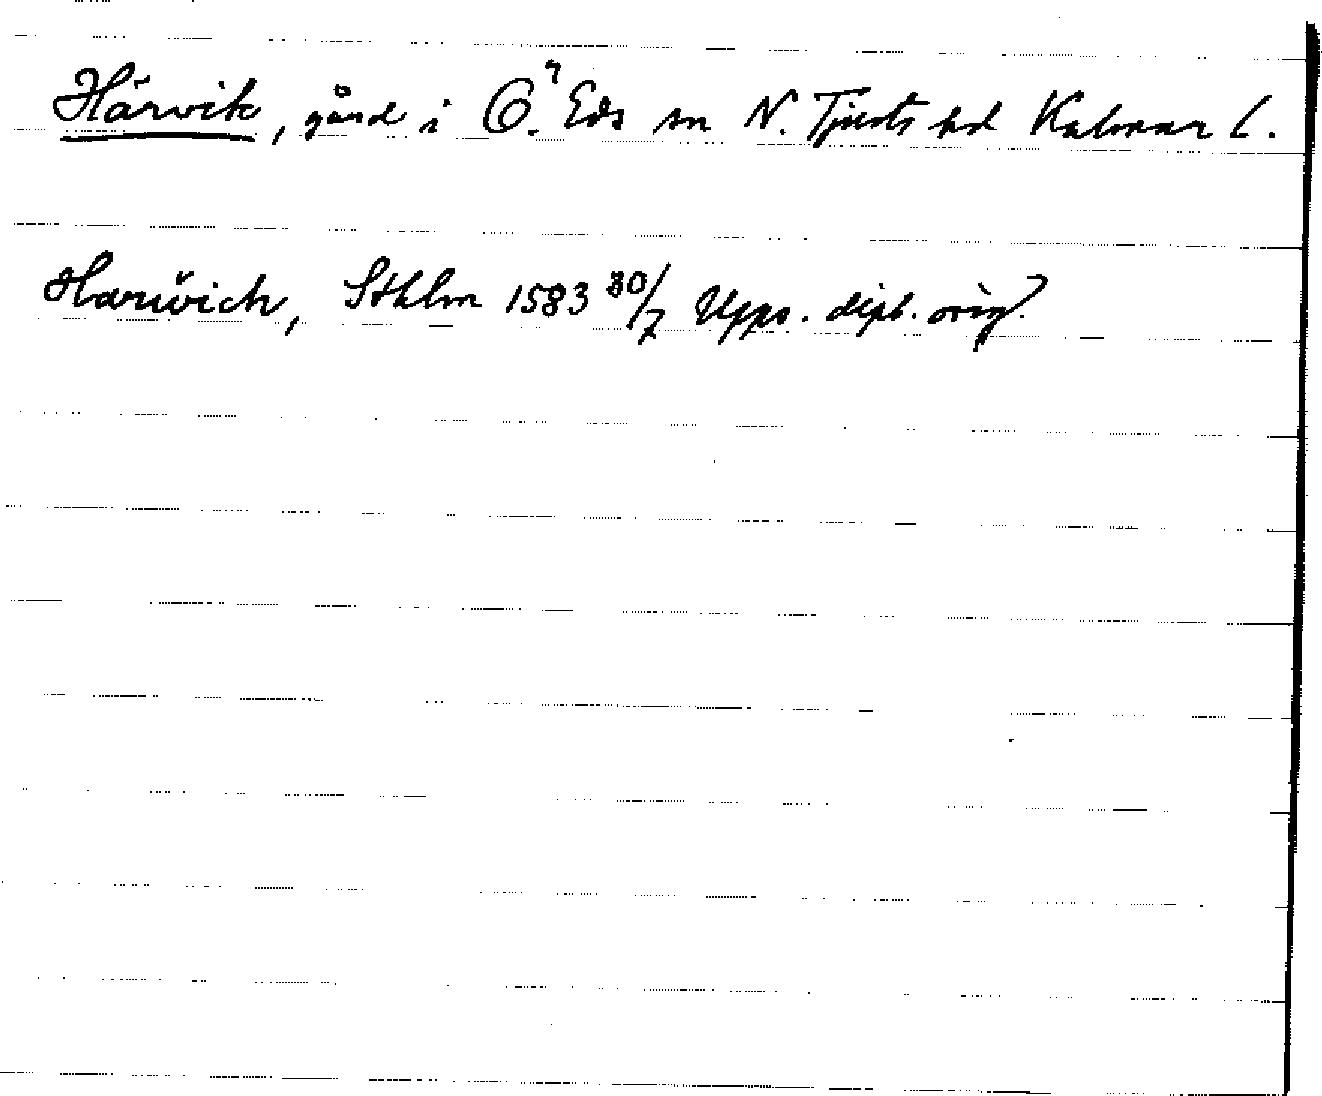 Härvik, gård i Ö. Eds sn N. Tjusts hd Kalmar l.
Harwich, Sthlm 1583 30/7 Upps. dipl. orig.